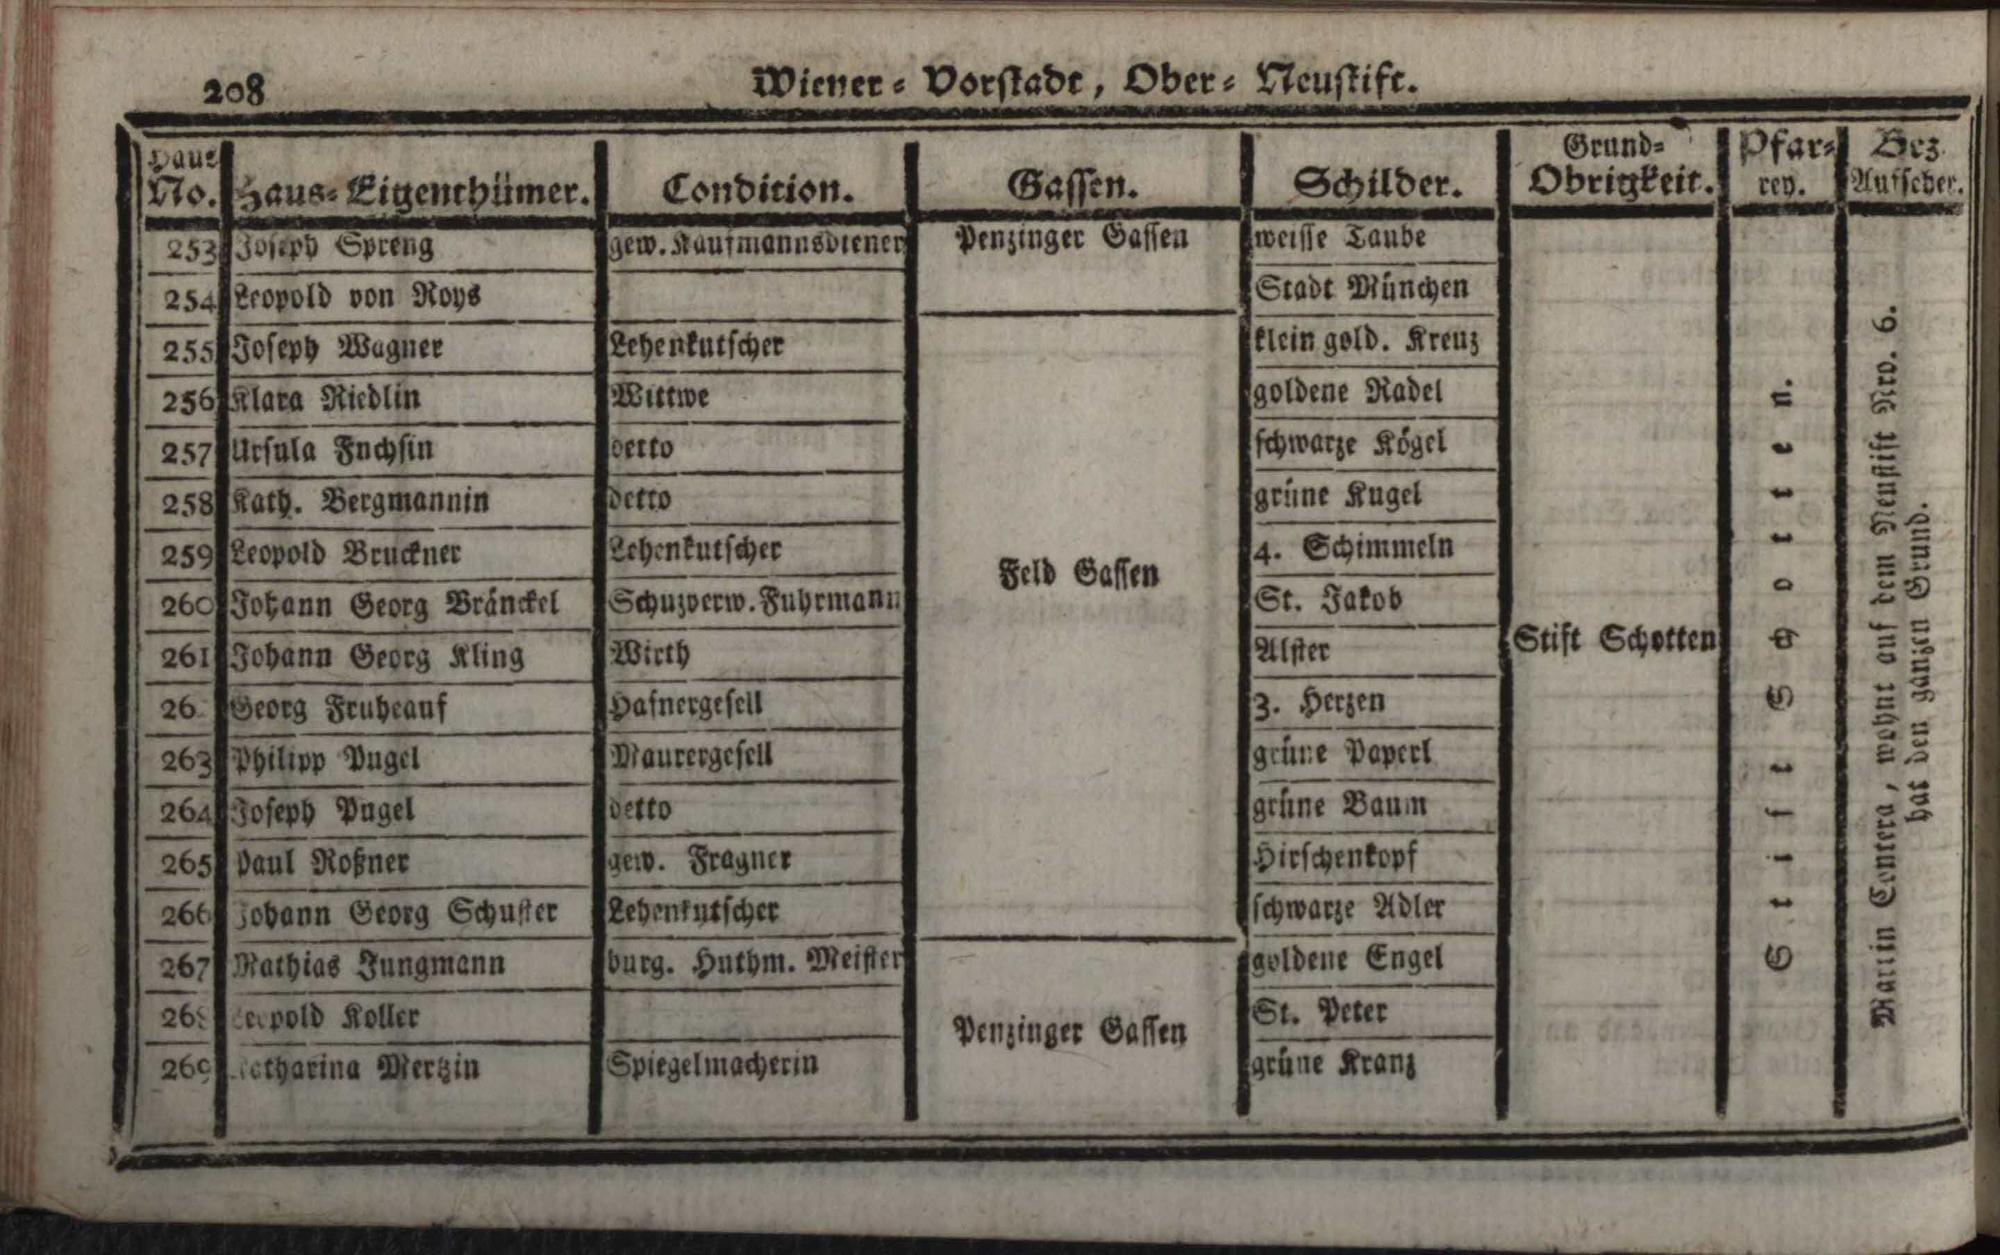 208 Wiener- Vorstadt, Ober- Neustift.
Haus No. Haus-Eigenthümer. Condition. Gassen. Schilder. Grund-Obrigkeit. Pfar-rey. Bez. Aufseher.
253 Joseph Spreng gew. Kaufmannsdiener Penzinger Gassen weisse Taube
254 Leopold von Roys Stadt München
255 Joseph Wagner Lehenkutscher klein gold. Kreuz
256 Klara Riedlin Wittwe goldene Radel
257 Ursula Fuchsin detto schwarze Kögel
258 Kath. Bergmannin detto grüne Kugel
259 Leopold Bruckner Lehenkutscher 4. Schimmeln
Feld Gassen
260 Johann Georg Bränckel Schuzverw. Fuhrmann St. Jakob
261 Johann Georg Kling Wirth Alster Stift Schotten
26 Georg Fruheauf Hafnergesell 3. Herzen
263 Philipp Pugel Maurergesell grüne Paperl
264 Joseph Pugel detto grüne Baum
265 Paul Roßner gew. Fragner Hirschenkopf
266 Johann Georg Schuster Lehenkutscher schwarze Adler
267 Mathias Jungmann burg. Huthm. Meister goldene Engel
268 Leopold Koller Penzinger Gassen St. Peter
269 Katharina Mertzin Spiegelmacherin grüne Kranz
Stift Schotten.
Martin Contera, wohnt auf dem Neustift Nro. 6.
hat den ganzen Grund.